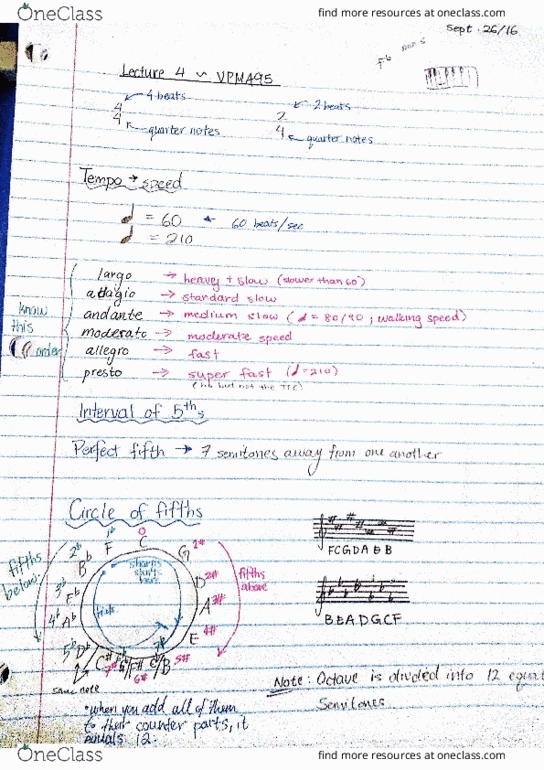 OneClass
find more resources at oneclass.com
Sept. 26/16
Lecture 4 ~ VPMA95
4 beats
4
4
quarter notes
2 beats
2
4
quarter notes
Tempo → speed
= 60 ← 60 beats/sec
= 210
know this order
largo → heavy + slow (slower than 60)
adagio → standard slow
andante → medium slow (♩ = 80/90 ; walking speed)
moderato → moderate speed
allegro → fast
presto → super fast (♩=210)
but not the
Interval of 5ths
Perfect fifth → 7 semitones away from one another
Circle of fifths
fifths below
fifths above
0
C
1b
F
2b
Bb
3b
4b
Ab
5b
Db
G
2#
D
3#
A
4#
E
5#
B
6#
F#
7#
C#
sharps start here
flats
same note
FCGDAEB
BEADGCF
Note: Octave is divided into 12 equal
Semitones
• when you add all of them
to their counter parts, it
equals 12.
OneClass
find more resources at oneclass.com